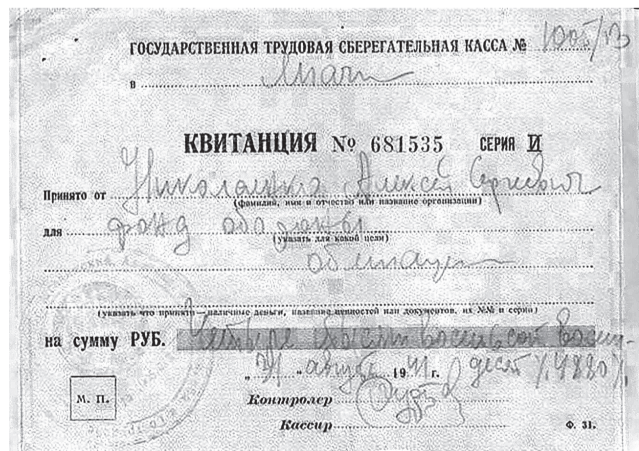 ГОСУДАРСТВЕННАЯ ТРУДОВАЯ СБЕРЕГАТЕЛЬНАЯ КАССА № 1005/13
в
КВИТАНЦИЯ № 681535 СЕРИЯ И
Принято от Алексей Сергеевич
(фамилия, имя и отчество или название организации)
для фонд обороны
(указать для какой цели)
(указать что принято—наличные деньги, название ценностей или документов, их №№ и серии)
на сумму РУБ. Четыре тысячи восемьсот восемь-
"31" август 1941 г. десят /4880/.
М. П.
Контролер
Кассир
Ф. 31.